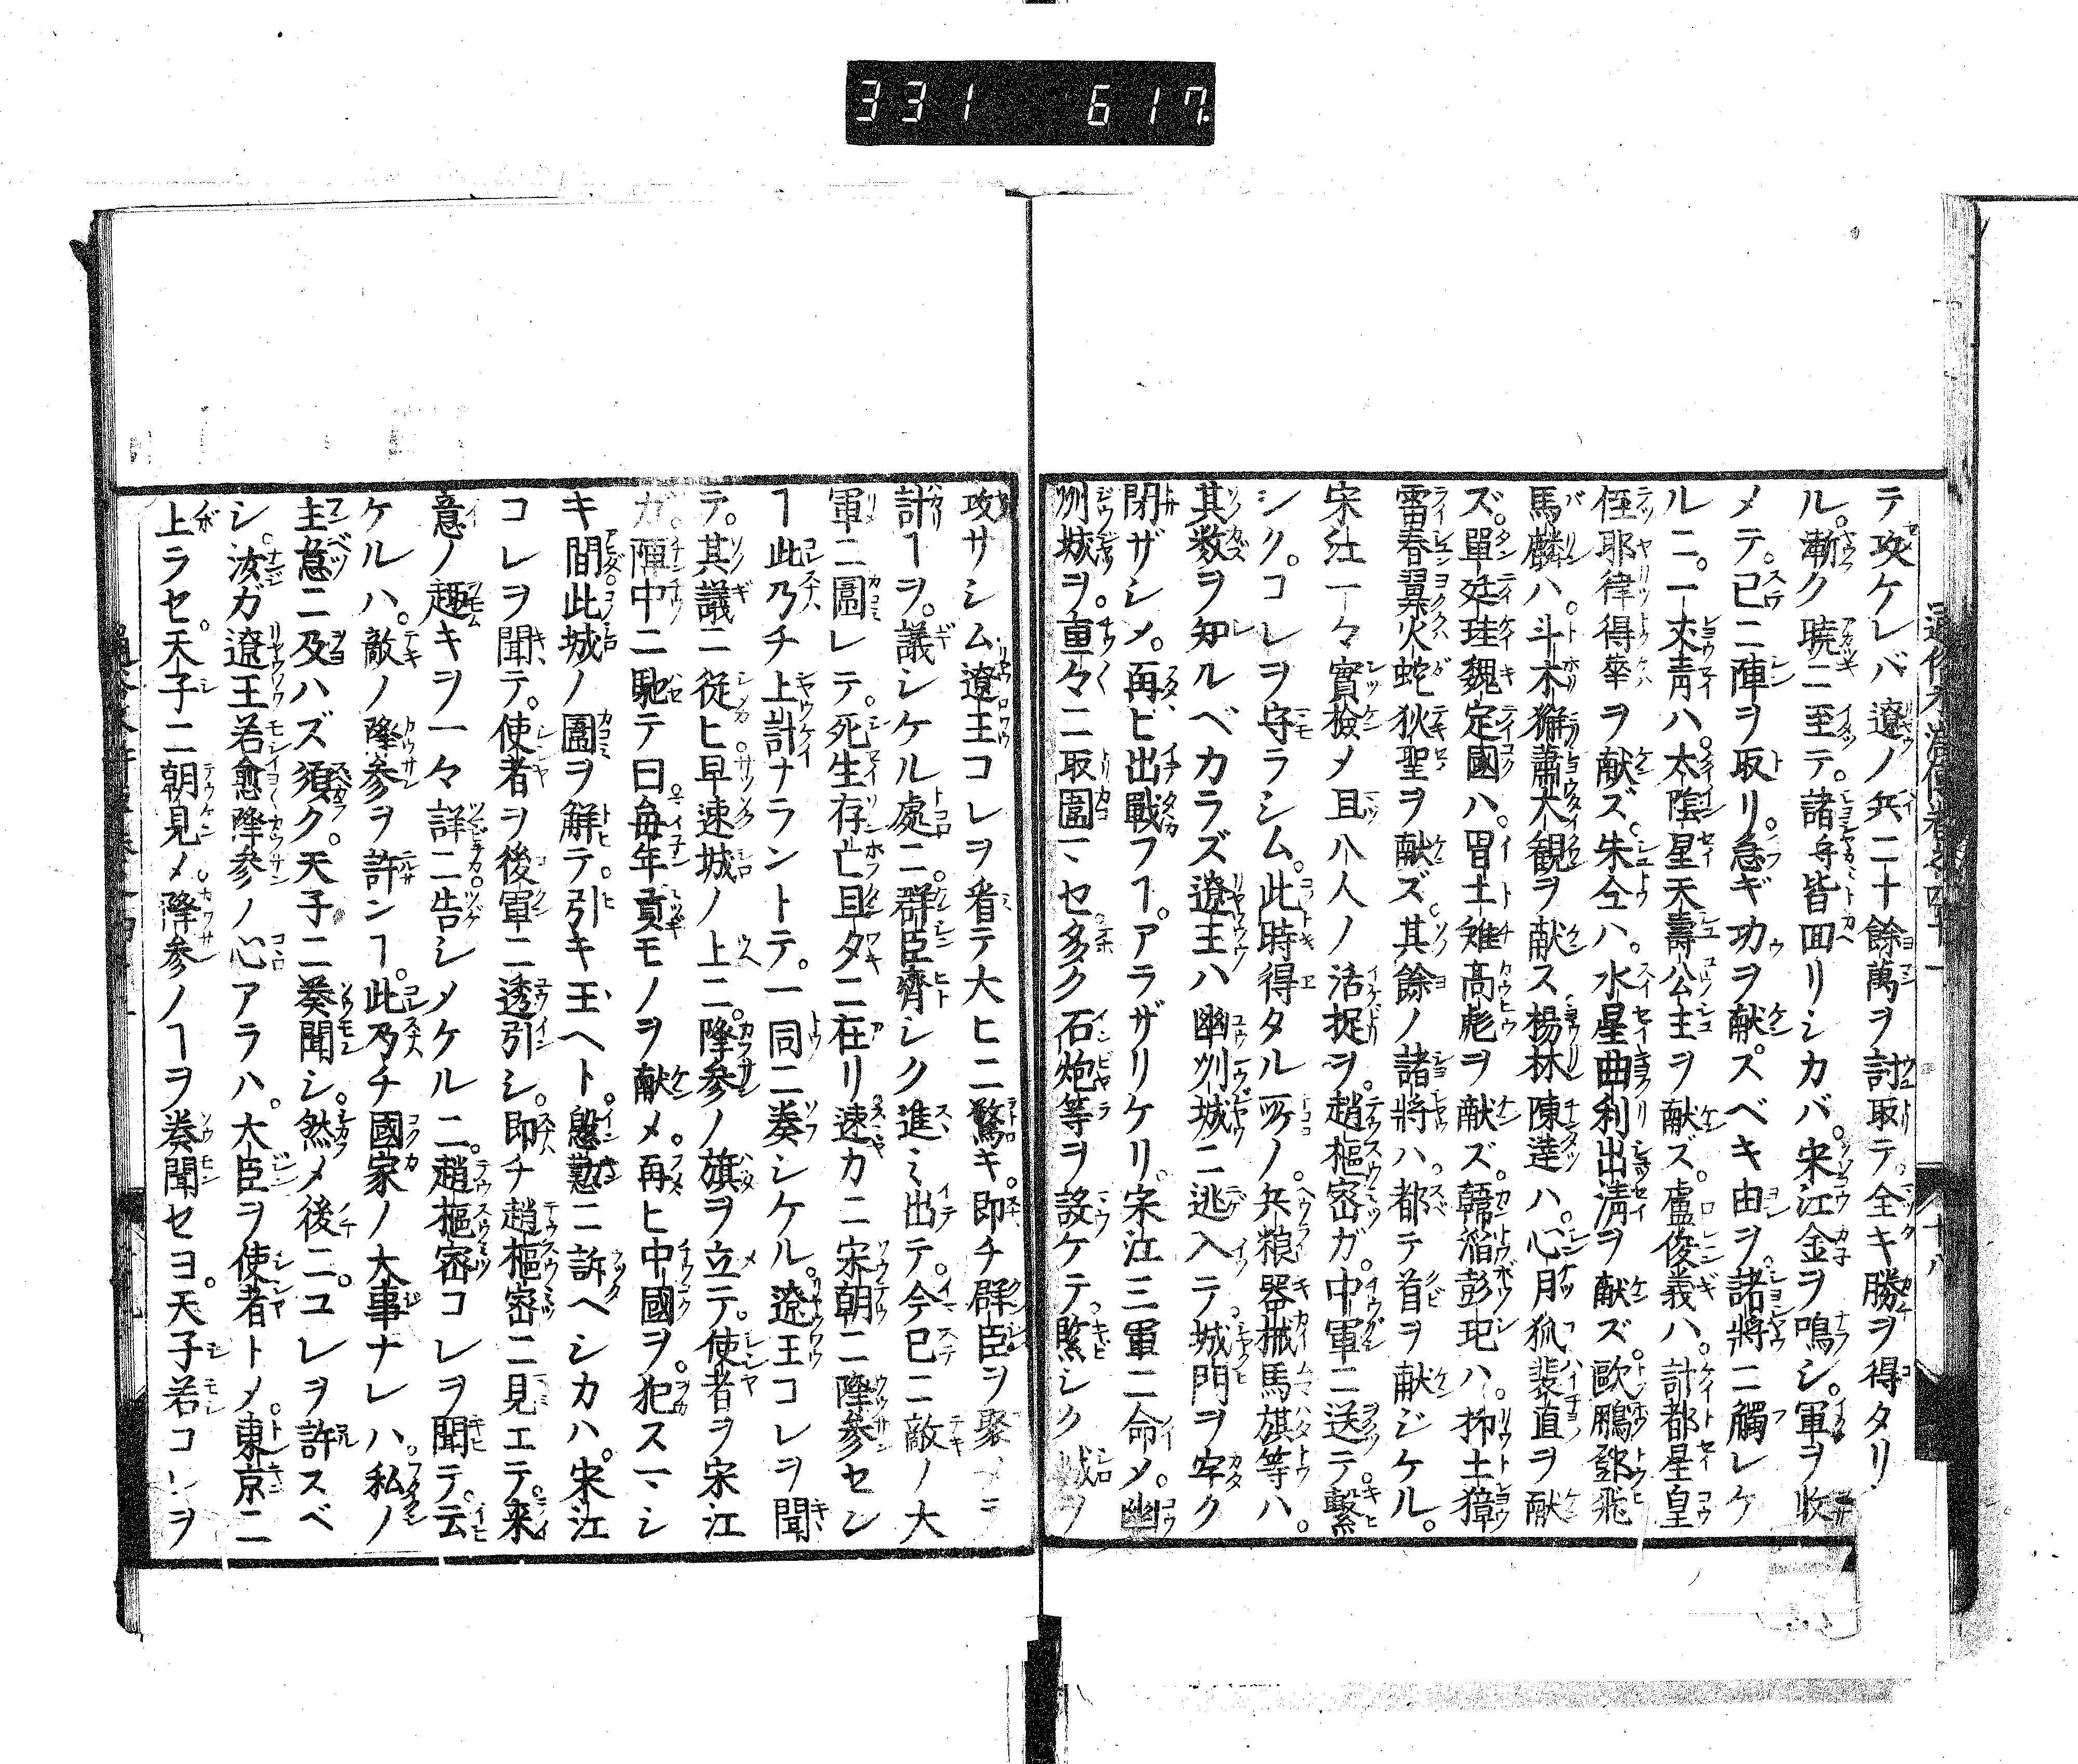 331 617.
テ攻ケレバ遼ノ兵二十餘萬ヲ討取テ全キ勝ヲ得タリ
ル。漸ク曉ニ至テ。諸將皆回リシカバ。宋江金ヲ鳴シ。軍ヲ收
メテ。已ニ陣ヲ取リ。急ギ功ヲ献ズベキ由ヲ。諸將ニ觸レケ
ルニ。一丈青ハ。太陰星天壽公主ヲ献ズ。盧俊義ハ。計都星皇
侄耶律得華ヲ献ズ。朱仝ハ。水星曲利出淸ヲ献ズ。歐鵬鄧飛
馬麟ハ。斗木獬蕭大観ヲ献ス。楊林陳達ハ。心月狐裴直ヲ献
ズ。單廷珪魏定國ハ。胃土雉高彪ヲ献ズ。韓滔彭玘ハ。柳土獐
雷春翼火蛇狄聖ヲ献ズ。其餘ノ諸將ハ。都テ首ヲ献ジケル。
宋江一々實檢メ且八人ノ活捉ヲ。趙樞密ガ。中軍ニ送テ。繫
シク。コレヲ守ラシム。此時得タル所ノ。兵粮器械馬旗等ハ。
其数ヲ知ルベカラズ遼王ハ幽州城ニ逃入テ。城門ヲ牢ク
閉ザシメ。再ビ出戰フヿ。アラザリケリ。宋江三軍ニ命メ。幽
州城ヲ。重々ニ取圍マセ多ク石炮等ヲ設ケテ。緊シク城ヲ
攻サシム遼王コレヲ看テ大ヒニ驚キ。即チ群臣ヲ聚メテ
計ヿヲ。議シケル處ニ。群臣齊シク進ミ出テ。今已ニ敵ノ大
軍ニ圍レテ。死生存亡旦夕ニ在リ速カニ宋朝ニ降參セン
ヿ此乃チ上計ナラントテ。一同ニ奏シケル。遼王コレヲ聞
テ。其議ニ從ヒ。早速城ノ上ニ。降參ノ旗ヲ立テ。使者ヲ宋江
ガ。陣中ニ馳テ曰。毎年貢モノヲ献メ。再ヒ中國ヲ。犯スマシ
キ間此城ノ圍ヲ解テ。引キ玉ヘト。慇懃ニ訴ヘシカハ。宋江
コレヲ聞テ。使者ヲ後軍ニ透引シ。即チ趙樞密ニ見エテ。来
意ノ趣キヲ一々詳ニ告シメケルニ。趙樞密コレヲ聞テ。云
ケルハ。敵ノ降參ヲ許ンヿ。此乃チ國家ノ大事ナレハ。私ノ
主意ニ及ハズ須ク。天子ニ奏聞シ。然メ後ニ。コレヲ許スベ
シ。汝ガ遼王若愈降參ノ心アラハ。大臣ヲ使者トメ。東京ニ
上ラセ。天子ニ朝見メ。降參ノヿヲ奏聞セヨ。天子若コレヲ